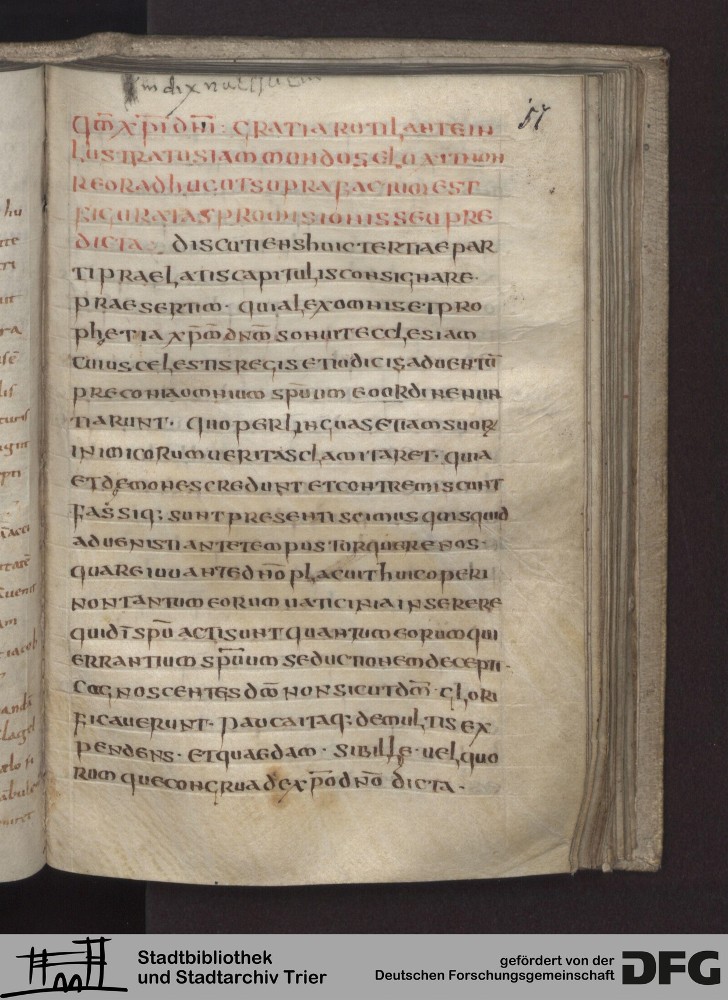 57
QM̄ X̄PI DN̄I : GRATIA RUTILANTE IN
LUSTRATUS IAM MUNDUS
REOR ADHUC UT SUPRA FACTUM EST
FIGURATAS PROUISIONIS SEU PRE
DICTA DISCUTIENS HUIC TERTIAE PAR
TI PRAELATIS CAPITULIS CONSIGNARE·
PRAESERTIM· QUIA LEX OMNIS ET PRO
PHETIA XP̄M DN̄M SONUIT ECCLESIAM
CUIUS CELESTIS REGIS ET IUDICIS ADUENTŪ
PRECONIA OMNIUM SP̄UUM EO ORDINE NUN
TIARUNT· QUO PER LINGUAS ETIAM SUOR
INIMICORUM UERITAS CLAMITARET· QUIA
ET DEMONES CREDUNT ET CONTREMISCUNT
FASSIQ; SUNT PRESENTI SCIMUS QUIS QUID
ADUENISTI ANTE TEMPUS TORQUERE NOS·
QUARE IUUANTE DN̄O PLACUIT HUIC OPERI
NON TANTUM EORUM UATICINIA INSERERE
QUI DĪ SPŪ ACTI SUNT QUANTUM EORUM QUI
ERRANTIUM SP̄UUM SEDUCTIONEM DECEPTI·
COGNOSCENTES DM̄ NON SICUT DM̄· GLORI
FICAUERUNT· PAUCA ITAQ; DE MULTIS EX
PENDENS· ET QUAEDAM· SIBILLE· UEL QUO
RUM QUE CONGRUA DE XP̄O DN̄O DICTA·
Stadtbibliothek
und Stadtarchiv Trier
gefördert von der
Deutschen Forschungsgemeinschaft
DFG